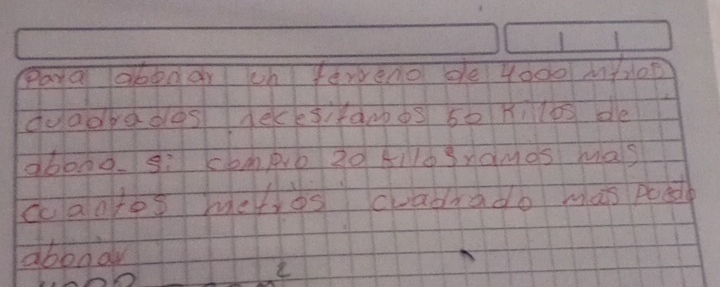 para abonar un terreno de 4000 metros
cuadrados necesitamos 50 kilos de
abono. si compro 20 kilogramos mas
cuantos metros cuadrado mas puedo
abonar